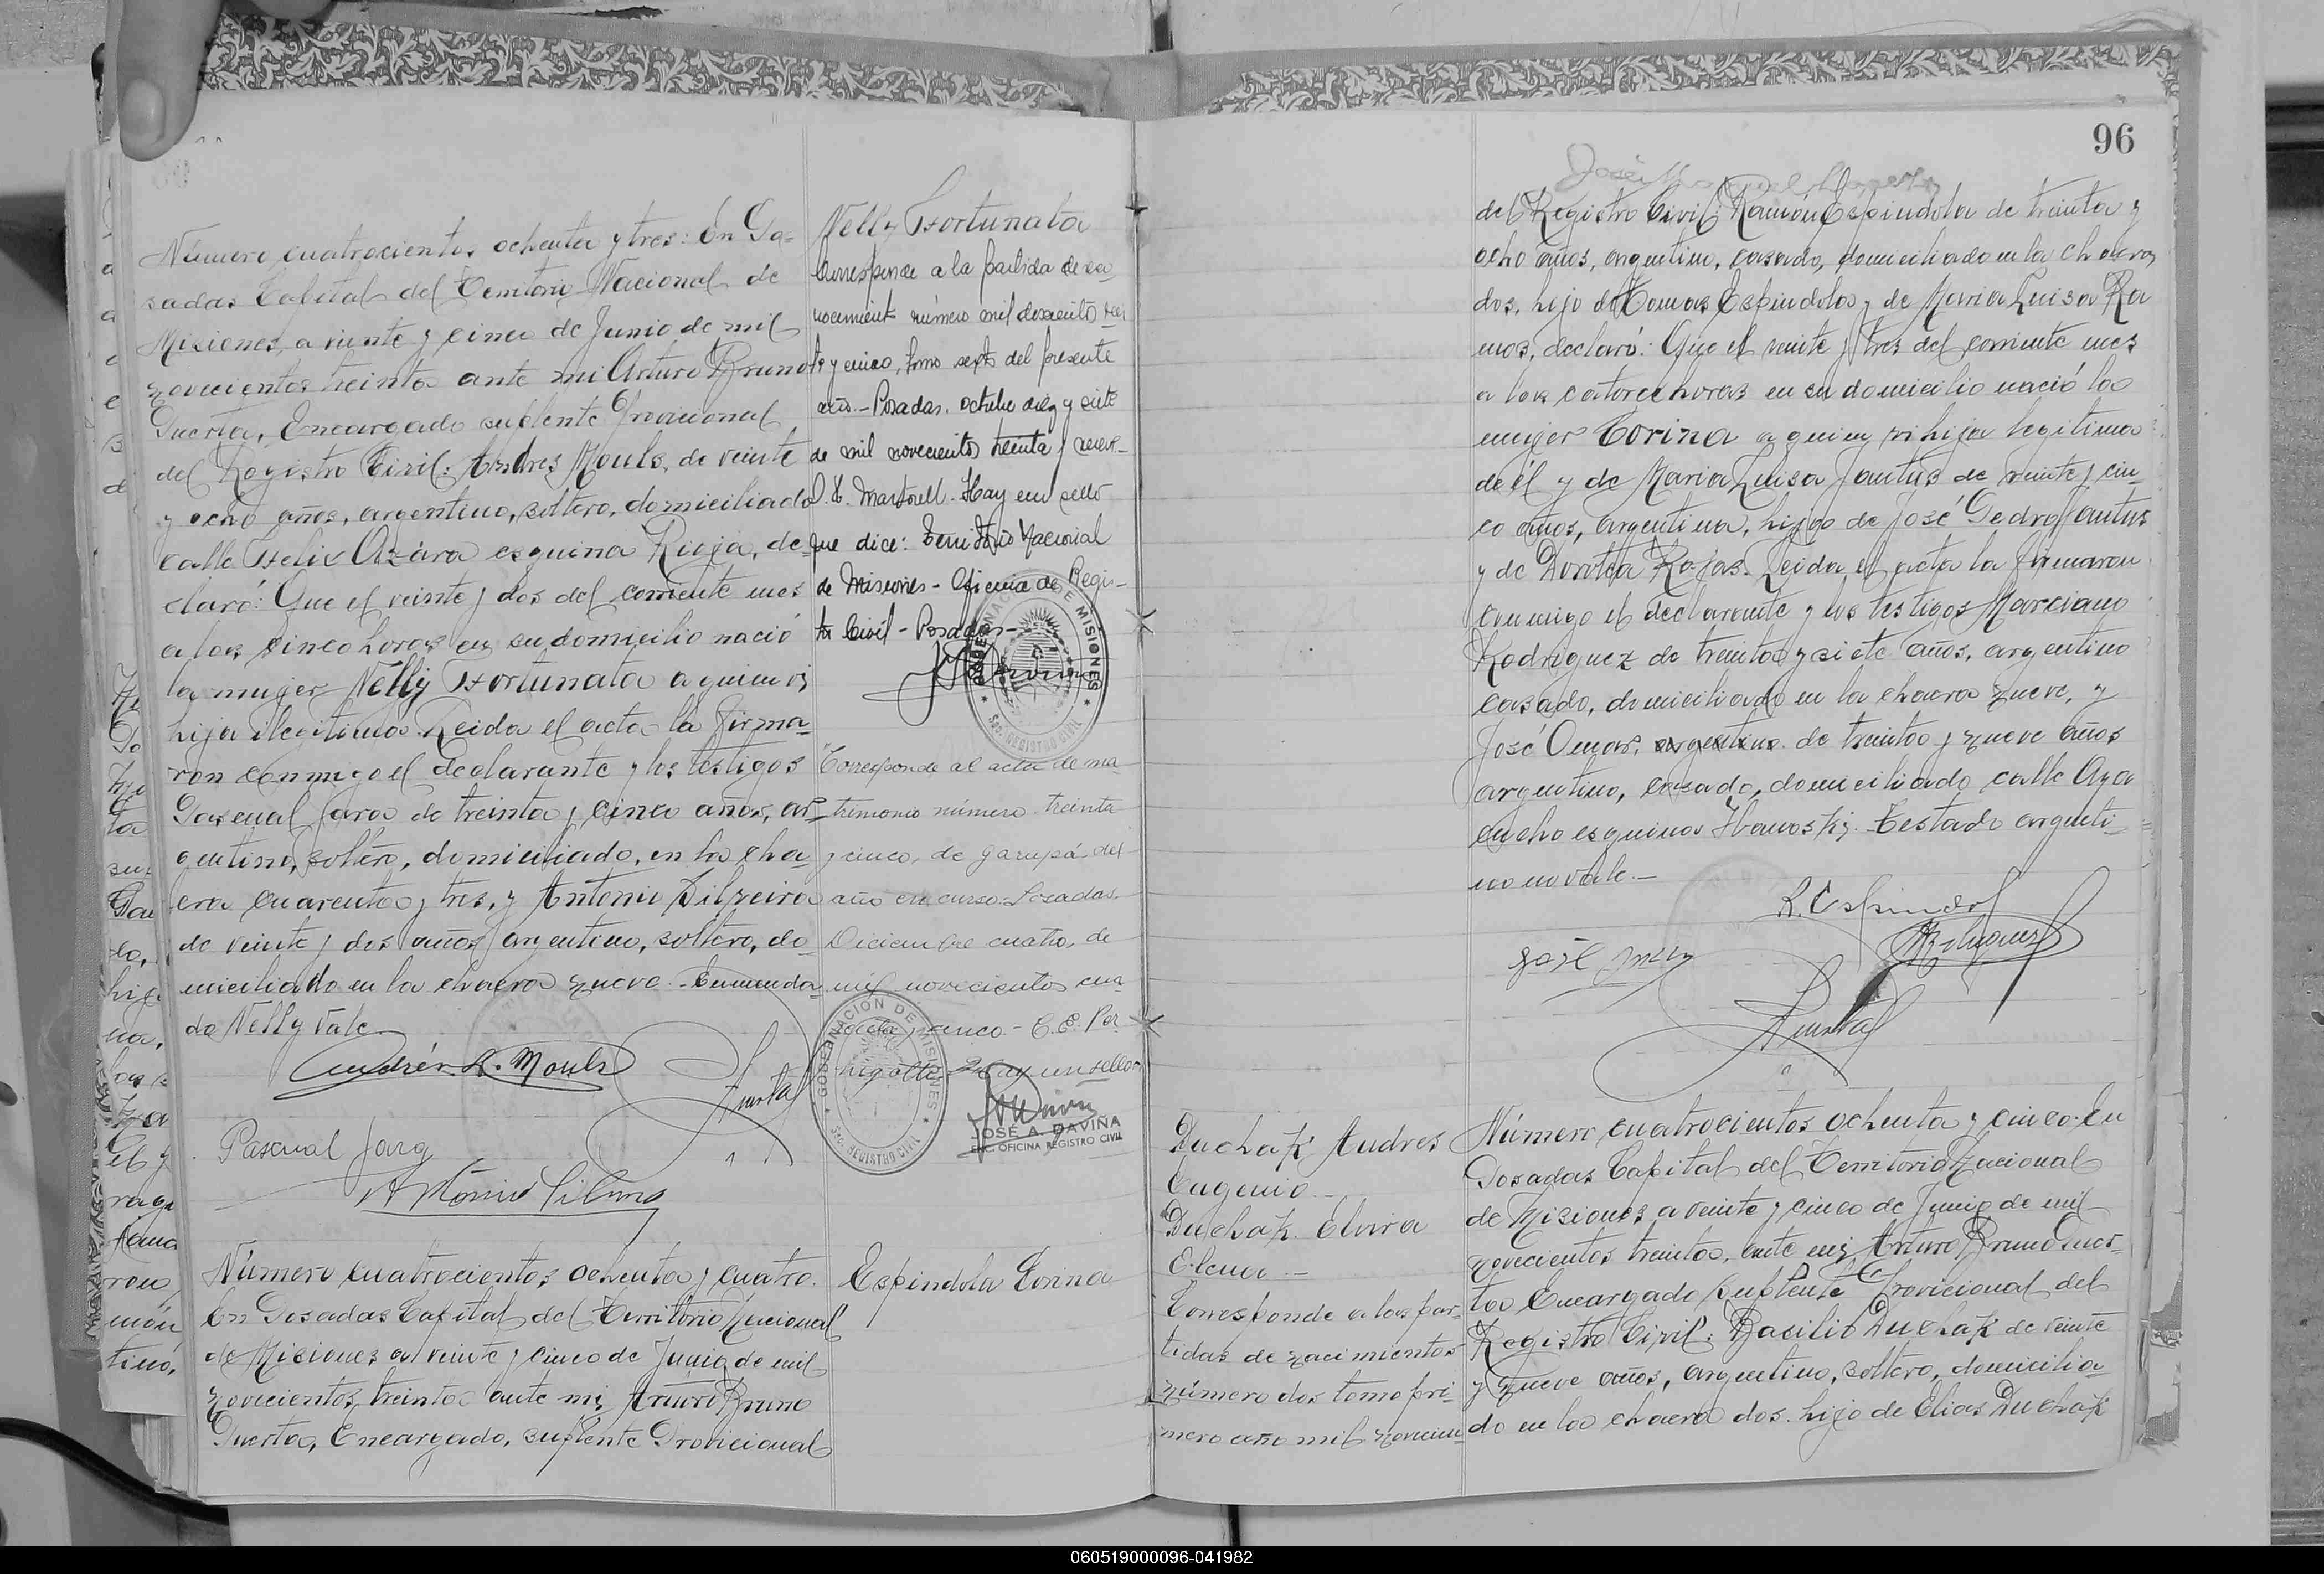 Número cuatrocientos ochenta y tres: En Po-
sadas Capital del Territorio Nacional de
Misiones, a veinte y cinco de Junio de mil
novecientos treinta ante mi Arturo Bruno
Puerta, Encargado suplente Provicional
del Registro Civil: Andres Mouls, de veinte
y ocho años, argentino, soltero, domiciliado
calle Felix Azára esquina Rioja, de-
claró: Que el veinte y dos del corriente mes
a las cinco horas en su domicilio nació
la mujer Nelly Fortunata a quien vi
hija ilegitima. Leida el acta la firma-
ron conmigo el declarante y los testigos
Pascual Jara de treinta y cinco años, ar-
gentino, soltero, domiciliado, en la cha
cra cuarenta y tres, y Antonio Silveira
de veinte y dos años argentino, soltero, do-
miciliado en la chacra nueve. Enmenda
do Nelly Vale.
Andrés R. Mouls
Puerta
Pascual Jara
Antonio
Número cuatrocientos ochenta y cuatro.
En Posadas Capital del Territorio Nacional
de Misiones a veinte y cinco de Junio de mil
novecientos treinta ante mi, Arturo Bruno
Puerta, Encargado, suplente Provicional
Nelly Fortunata
Corresponde a la partida de reco
nocimiento número mil doscientos
y cinco, tomo sexto del presente
año.- Posadas, octubre diez y siete
de mil novecientos treinta y nueve.-
Martorell. Hay un sello
que dice: Territorio Nacional
de Misiones - Oficina de Regis-
tro Civil - Posadas-
GOBERNACION DE MISIONES
Sec. REGISTRO CIVIL
Corresponde al acta de ma-
trimonio número treinta
y cinco, de Garupá, del
año en curso. Posadas.
Diciembre cuatro, de
mil novecientos cua
renta y cinco.-
Hay un sello
GOBERNACION DE MISIONES
Sec. REGISTRO CIVIL
JOSÉ A. DAVIÑA
ENC. OFICINA REGISTRO CIVIL
Espindola Corina
96
José
del Registro Civil: Ramón Espindola de treinta y
ocho años, argentino, casado, domiciliado en la chacra
dos, hijo de Tomas Espindola y de Maria Luisa Ra
mos, declaró: Que el veinte y tres del corriente mes
a las catorce horas en su domicilio nació la
mujer Corina a quien vi hija legitima
de él y de Maria Luisa Jantus de veinte y cin-
co años, argentina, hija de José Pedro Jantus
y de Dorotea Rojas. Leida el acta la firmaron
conmigo el declarante y los testigos Marciano
Rodriguez de treinta y siete años, argentino
casado, domiciliado en la chacra nueve, y
José Omar, argentino de treinta y nueve años
argentino, casado, domiciliado calle Aya
cucho esquina Ivanoski. Testado argenti-
no no vale.-
R. Espindola
José
Puerta
Duchak Andres
Eugenio -
Duchak Elvira
Elena -
Corresponde a las par-
tidas de nacimientos
número dos tomo pri-
mero año mil novecien-
Número cuatrocientos ochenta y cinco. En
Posadas Capital del Territorio Nacional
de Misiones a veinte y cinco de Junio de mil
novecientos treinta, ante mi, Arturo Bruno Puer-
ta Encargado suplente Provicional del
Registro Civil: Basilio Duchak de veinte
y nueve años, argentino, soltero, domicilia-
do en la chacra dos. hijo de Elias Duchak
060519000096-041982